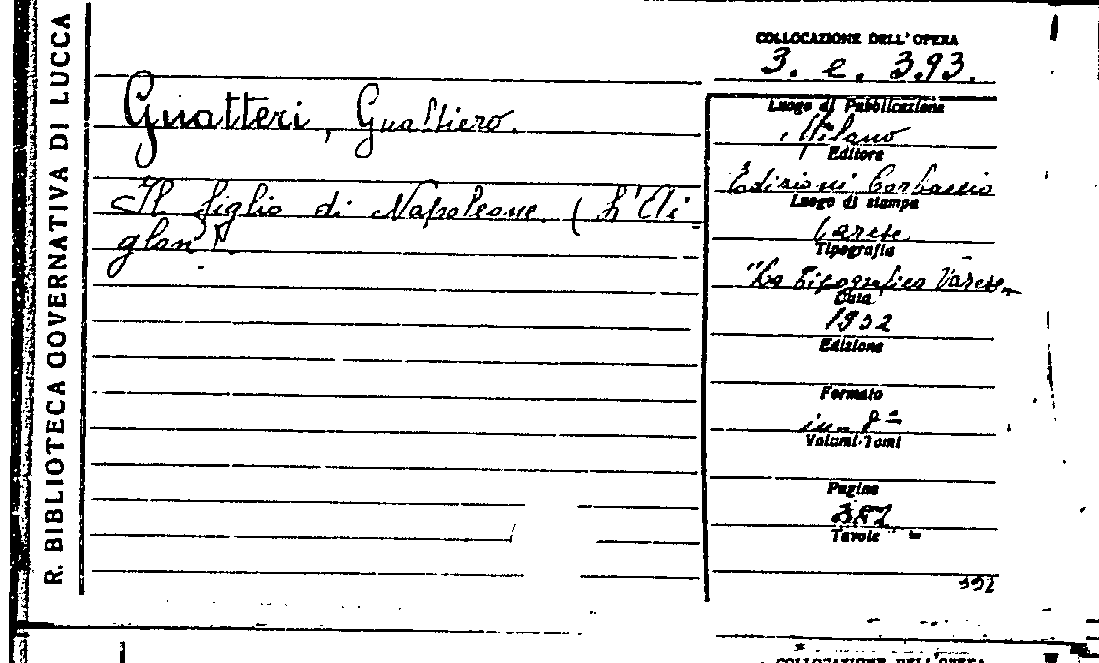 R. BIBLIOTECA GOVERNATIVA DI LUCCA
COLLOCAZIONE DELL'OPERA
3. e. 393.
Guatteri, Gualtiero.
Il figlio di Napoleone. (L'
Luogo di Pubblicazione
Milano
Editore
Edizioni Corbaccio
Luogo di stampa
Varese
Tipografia
"La Tipografica Varese"
Data
1932
Edizione
Formato
in-8º
Volumi-Tomi
Pagine
Tavole
COLLOCAZIONE DELL'OPERA